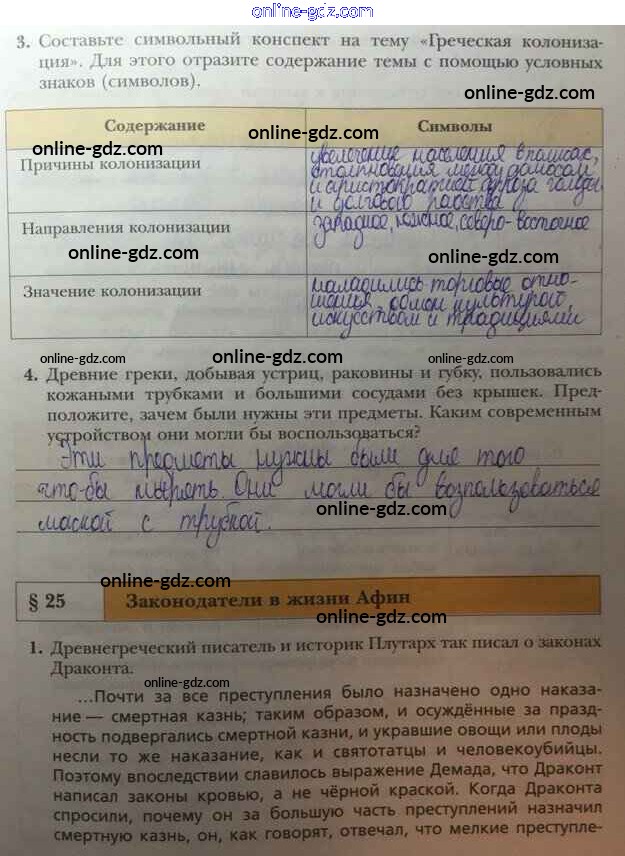 online-gdz.com
3. Составьте символьный конспект на тему «Греческая колониза-
ция». Для этого отразите содержание темы с помощью условных
знаков (символов).
online-gdz.com
online-gdz.com
Содержание
online-gdz.com
Символы
online-gdz.com
Причины колонизации
увеличение населения в полисах,
столкновения между демосом
и аристократией, угроза голода
и долгового рабства
Направления колонизации
западное, южное, северо-восточное
online-gdz.com
online-gdz.com
Значение колонизации
наладились торговые отно-
шения, обмен культурой,
искусством и традициями
online-gdz.com
online-gdz.com
online-gdz.com
4. Древние греки, добывая устриц, раковины и губку, пользовались
кожаными трубками и большими сосудами без крышек. Пред-
положите, зачем были нужны эти предметы. Каким современным
устройством они могли бы воспользоваться?
online-gdz.com
Эти предметы нужны были для того
что-бы нырять. Они могли бы возпользоваться
online-gdz.com
маской с трубкой.
online-gdz.com
§ 25
Законодатели в жизни Афин
online-gdz.com
1. Древнегреческий писатель и историк Плутарх так писал о законах
Драконта.
online-gdz.com
...Почти за все преступления было назначено одно наказа-
ние — смертная казнь; таким образом, и осуждённые за празд-
ность подвергались смертной казни, и укравшие овощи или плоды
несли то же наказание, как и святотатцы и человекоубийцы.
Поэтому впоследствии славилось выражение Демада, что Драконт
написал законы кровью, а не чёрной краской. Когда Драконта
спросили, почему он за большую часть преступлений назначил
смертную казнь, он, как говорят, отвечал, что мелкие преступле-